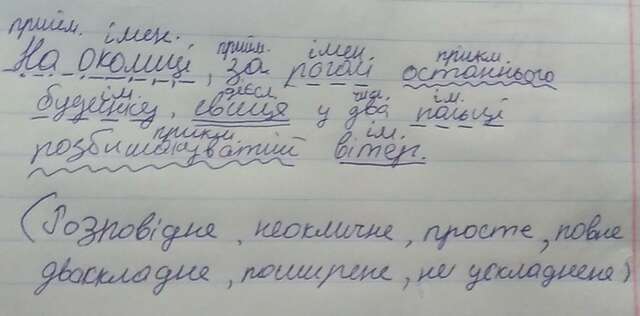 прийм. імен.
прийм. імен. прикм.
На околиці, за рогом останнього
ім. дієсл. чис. ім.
будинку, свище у два пальці
прикм. ім.
розбишакуватий вітер.
(Розповідне, неокличне, просте, повне
двоскладне, поширене, не ускладнене)